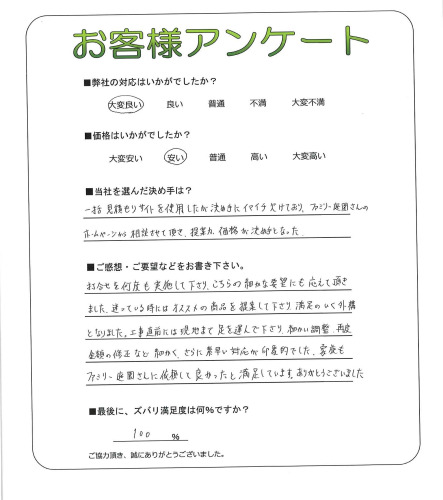 お客様アンケート
■弊社の対応はいかがでしたか？
大変良い 良い 普通 不満 大変不満
■価格はいかがでしたか？
大変安い 安い 普通 高い 大変高い
■当社を選んだ決め手は？
一括見積もりサイトを使用したが決め手にイマイチ欠けており、ファミリー庭園さんの
ホームページから相談させて頂き、提案力、価格が決め手となった。
■ご感想・ご要望などをお書き下さい。
打合せを何度も実施して下さり、こちらの細かな要望にも応えて頂き
ました。迷っている時にはオススメの商品を提案して下さり満足のいく外構
となりました。工事直前には現地まで足を運んで下さり、細かい調整、再度
金額の修正など細かく、さらに素早い対応が印象的でした。家族も
ファミリー庭園さんに依頼して良かったと満足しています。ありがとうございました
■最後に、ズバリ満足度は何%ですか？
100 %
ご協力頂き、誠にありがとうございました。